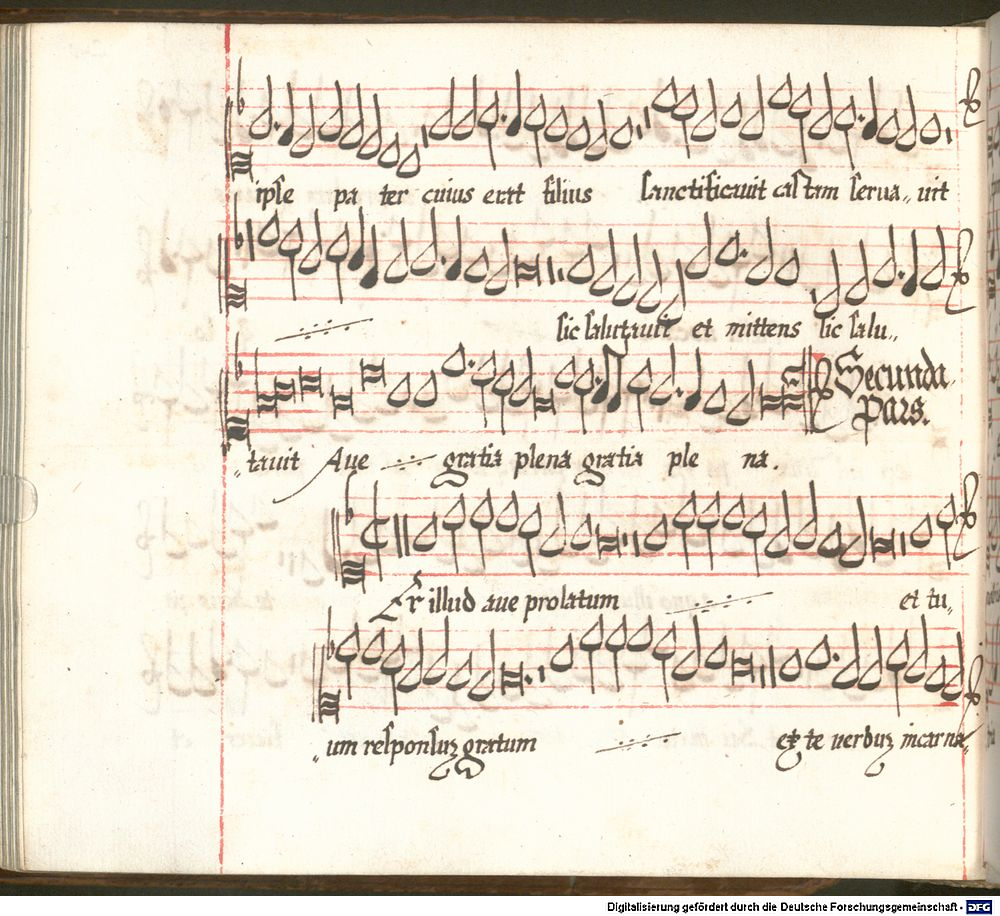 ipse pa ter cuius erat filius sanctificauit castam serua„ uit
sic salutauit et mittens sic salu„
„tauit Aue gratia plena gratia ple na.
Secunda
Pars.
Er illud aue prolatum et tu„
„um responsuʒ gratum et te uerbuʒ incarna„
Digitalisierung gefördert durch die Deutsche Forschungsgemeinschaft - DFG